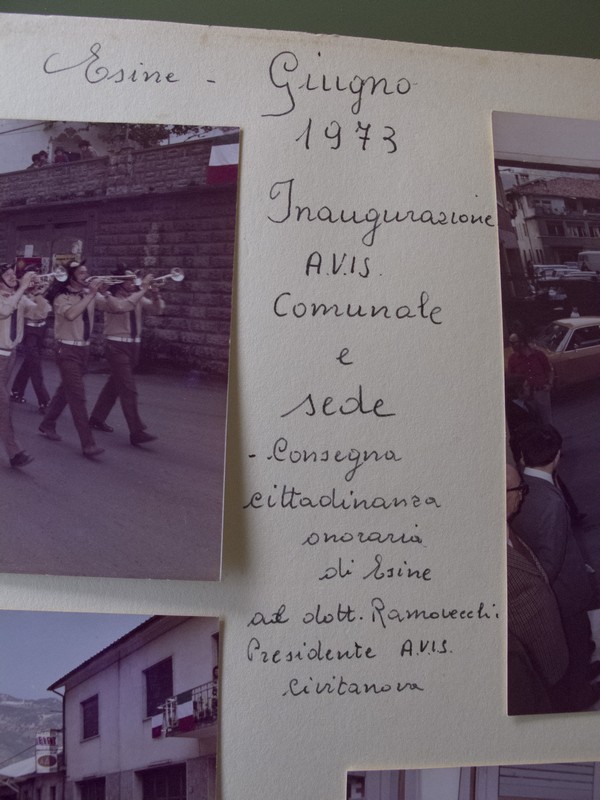 Esine - Giugno
1973
Inaugurazione
A.V.I.S.
Comunale
e
sede
- Consegna
cittadinanza
onoraria
di Esine
al dott. Ramovecchi
Presidente A.V.I.S.
Civitanova